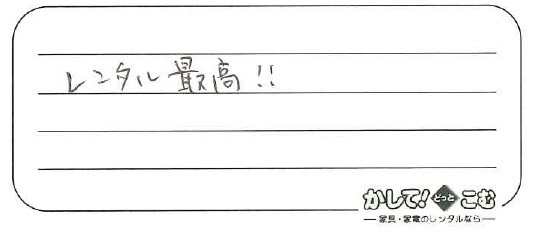 レンタル最高!!
かして!どっとこむ
家具・家電のレンタルなら